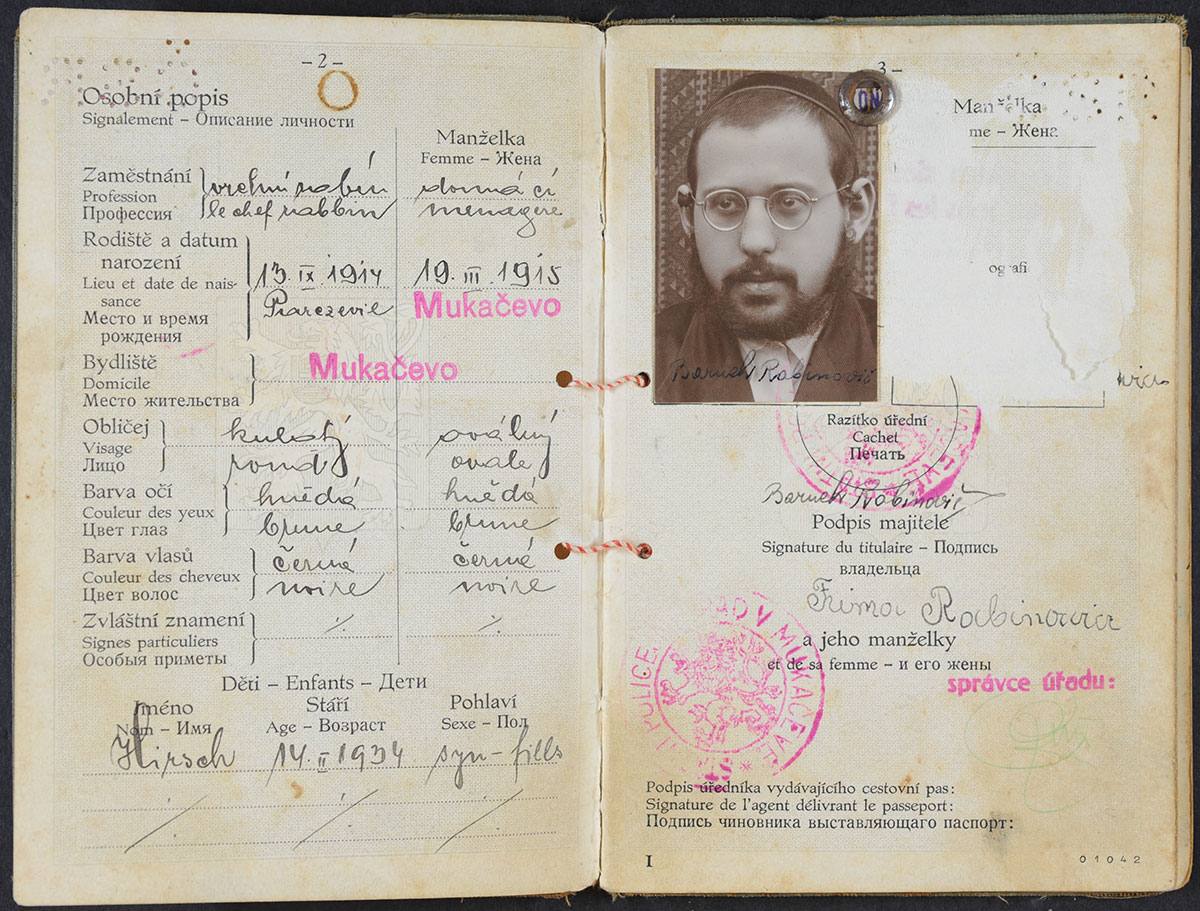 - 2 -
Osobní popis
Signalement – Описание личности
Manželka
Femme – Жена
Zaměstnání
Profession
Профессия
vrchní rabín
le chef rabbin
domácí
menagère
Rodiště a datum
narození
Lieu et date de nais-
sance
Место и время
рождения
13. IX. 1914
19. III. 1915
Mukačevo
Bydliště
Domicile
Место жительства
Mukačevo
Obličej
Visage
Лицо
kulatý
rond
oválný
ovale
Barva očí
Couleur des yeux
Цвет глаз
hnědá
brune
hnědá
brune
Barva vlasů
Couleur des cheveux
Цвет волос
černá
noire
černá
noire
Zvláštní znamení
Signes particuliers
Особыя приметы
Děti – Enfants – Дети
Jméno
Nom – Имя
Stáří
Age – Возраст
Pohlaví
Sexe – Пол
Hirsch 14. II 1934 syn – fills
3 -
Manželka
me – Жена
ografi
Baruch Rabinovič
Razítko úřední
Cachet
Печать
Baruch Rabinovič
Podpis majitele
Signature du titulaire – Подпись
владельца
Frima Rabinowicz
a jeho manželky
et de sa femme – и его жены
správce úřadu:
Podpis úředníka vydávajícího cestovní pas:
Signature de l'agent délivrant le passeport:
Подпись чиновника выставляющаго паспорт:
I
01042